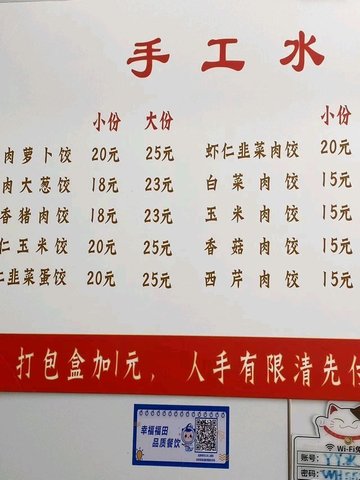 手工水
小份 大份 小份
肉萝卜饺 20元 25元 虾仁韭菜肉饺 20元
肉大葱饺 18元 23元 白菜肉饺 15元
香猪肉饺 18元 23元 玉米肉饺 15元
仁玉米饺 20元 25元 香菇肉饺 15元
仁韭菜蛋饺 20元 25元 西芹肉饺 15元
打包盒加1元，人手有限清先付
幸福福田
品质餐饮
Wi-Fi免
账号：